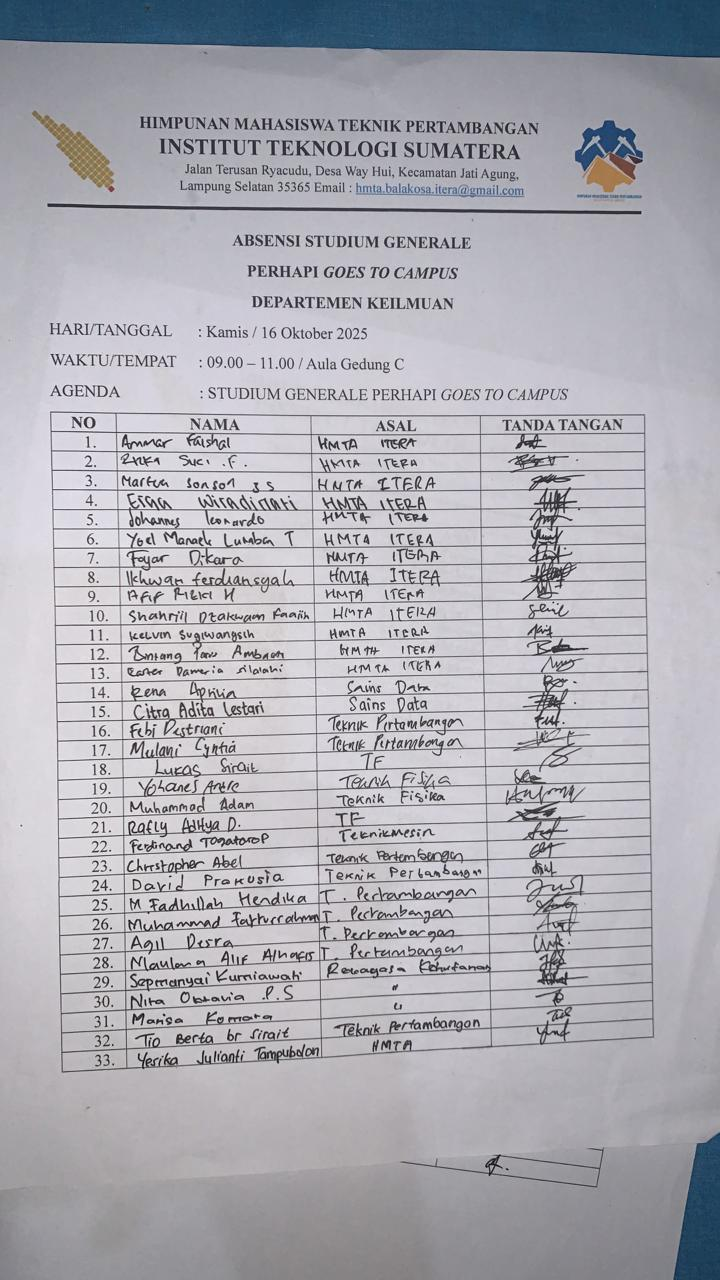 HIMPUNAN MAHASISWA TEKNIK PERTAMBANGAN
INSTITUT TEKNOLOGI SUMATERA
Jalan Terusan Ryacudu, Desa Way Hui, Kecamatan Jati Agung,
Lampung Selatan 35365 Email : hmta.balakosa.itera@gmail.com
ABSENSI STUDIUM GENERALE
PERHAPI GOES TO CAMPUS
DEPARTEMEN KEILMUAN
HARI/TANGGAL : Kamis / 16 Oktober 2025
WAKTU/TEMPAT : 09.00 – 11.00 / Aula Gedung C
AGENDA : STUDIUM GENERALE PERHAPI GOES TO CAMPUS
NO NAMA ASAL TANDA TANGAN
1. Ammar Faishal HMTA ITERA
2. Suci .F. HMTA ITERA
3. Martua HMTA ITERA
4. HMTA ITERA
5. Johannes leonardo HMTA ITERA
6. Yoel Manaek Lumban T HMTA ITERA
7. Fajar Dikara HMTA ITERA
8. Ikhwan ferdiansyah HMTA ITERA
9. Afif Rizki H HMTA ITERA
10. Shahriil Dzakwaan HMTA ITERA
11. Kelvin HMTA ITERA
12. Bintang HMTA ITERA
13. Dameria silalahi HMTA ITERA
14. Rena Aprilia Sains Data
15. Citra Adita Lestari Sains Data
16. Febi Destriani Teknik Pertambangan
17. Mulani Cyntia Teknik Pertambangan
18. Lukas Sirait TF
19. Yohanes Teknik Fisika
20. Muhammad Adam Teknik Fisika
21. Rafly Aditya D. TF
22. Ferdinand Togatorop Teknik Mesin
23. Christopher Abel Teknik Pertambangan
24. David Prakusia Teknik Pertambangan
25. M Fadhillah Hendika T. Pertambangan
26. Muhammad Fatturrahman T. Pertambangan
27. Agil Desra T. Pertambangan
28. Maulana Alif Alhafis T. Pertambangan
29. Sepmanyai Kurniawati Rekayasa Kehutanan
30. Nita Oktavia .P.S "
31. Marisa Komara "
32. Tio Berta br Sirait Teknik Pertambangan
33. Yesika Julianti Tampubolon HMTA